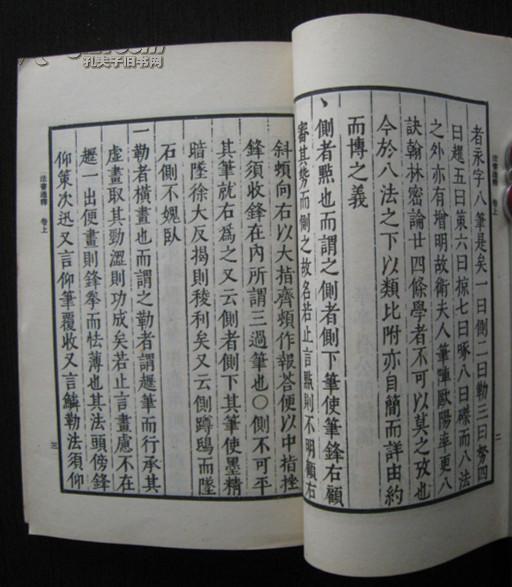 者永字八筆是矣一曰側二曰勒三曰努四
曰趯五曰策六曰掠七曰啄八曰磔而八法
之外亦有增明故衛夫人筆陣歐陽率更八
訣翰林密論廿四條學者不可以莫之攷也
今於八法之下以類比附亦自簡而詳由約
而博之義
丶側者點也而謂之側者側下筆使筆鋒右顧
審其勢而側之故名若止言點則不明顧右
法書通釋 卷上
二
斜頓向右以大指齊頻作報荅便以中指挫
鋒須收鋒在內所謂三過筆也〇側不可平
其筆就右為之又云側者側下其筆使墨精
暗墜徐大反揭則稜利矣又云側蹲鴟而墜
石側不媿臥
一勒者橫畫也而謂之勒者謂趯筆而行承其
虛畫取其勁澀則功成矣若止言畫慮不在
趯一出便畫則鋒拳而怯薄也其法頭傍鋒
仰策次迅又言仰筆覆收又言鱗勒法須仰
法書通釋 卷上
三
孔夫子旧书网